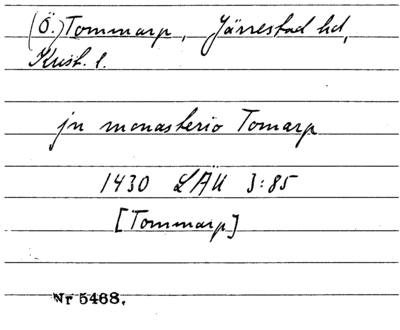 (Ö.) Tommarp, Järrestad hd,
Krist. l.
jn monasterio Tomarp
1430 LÄU 3:85
[Tommarp]
Nr 5468.